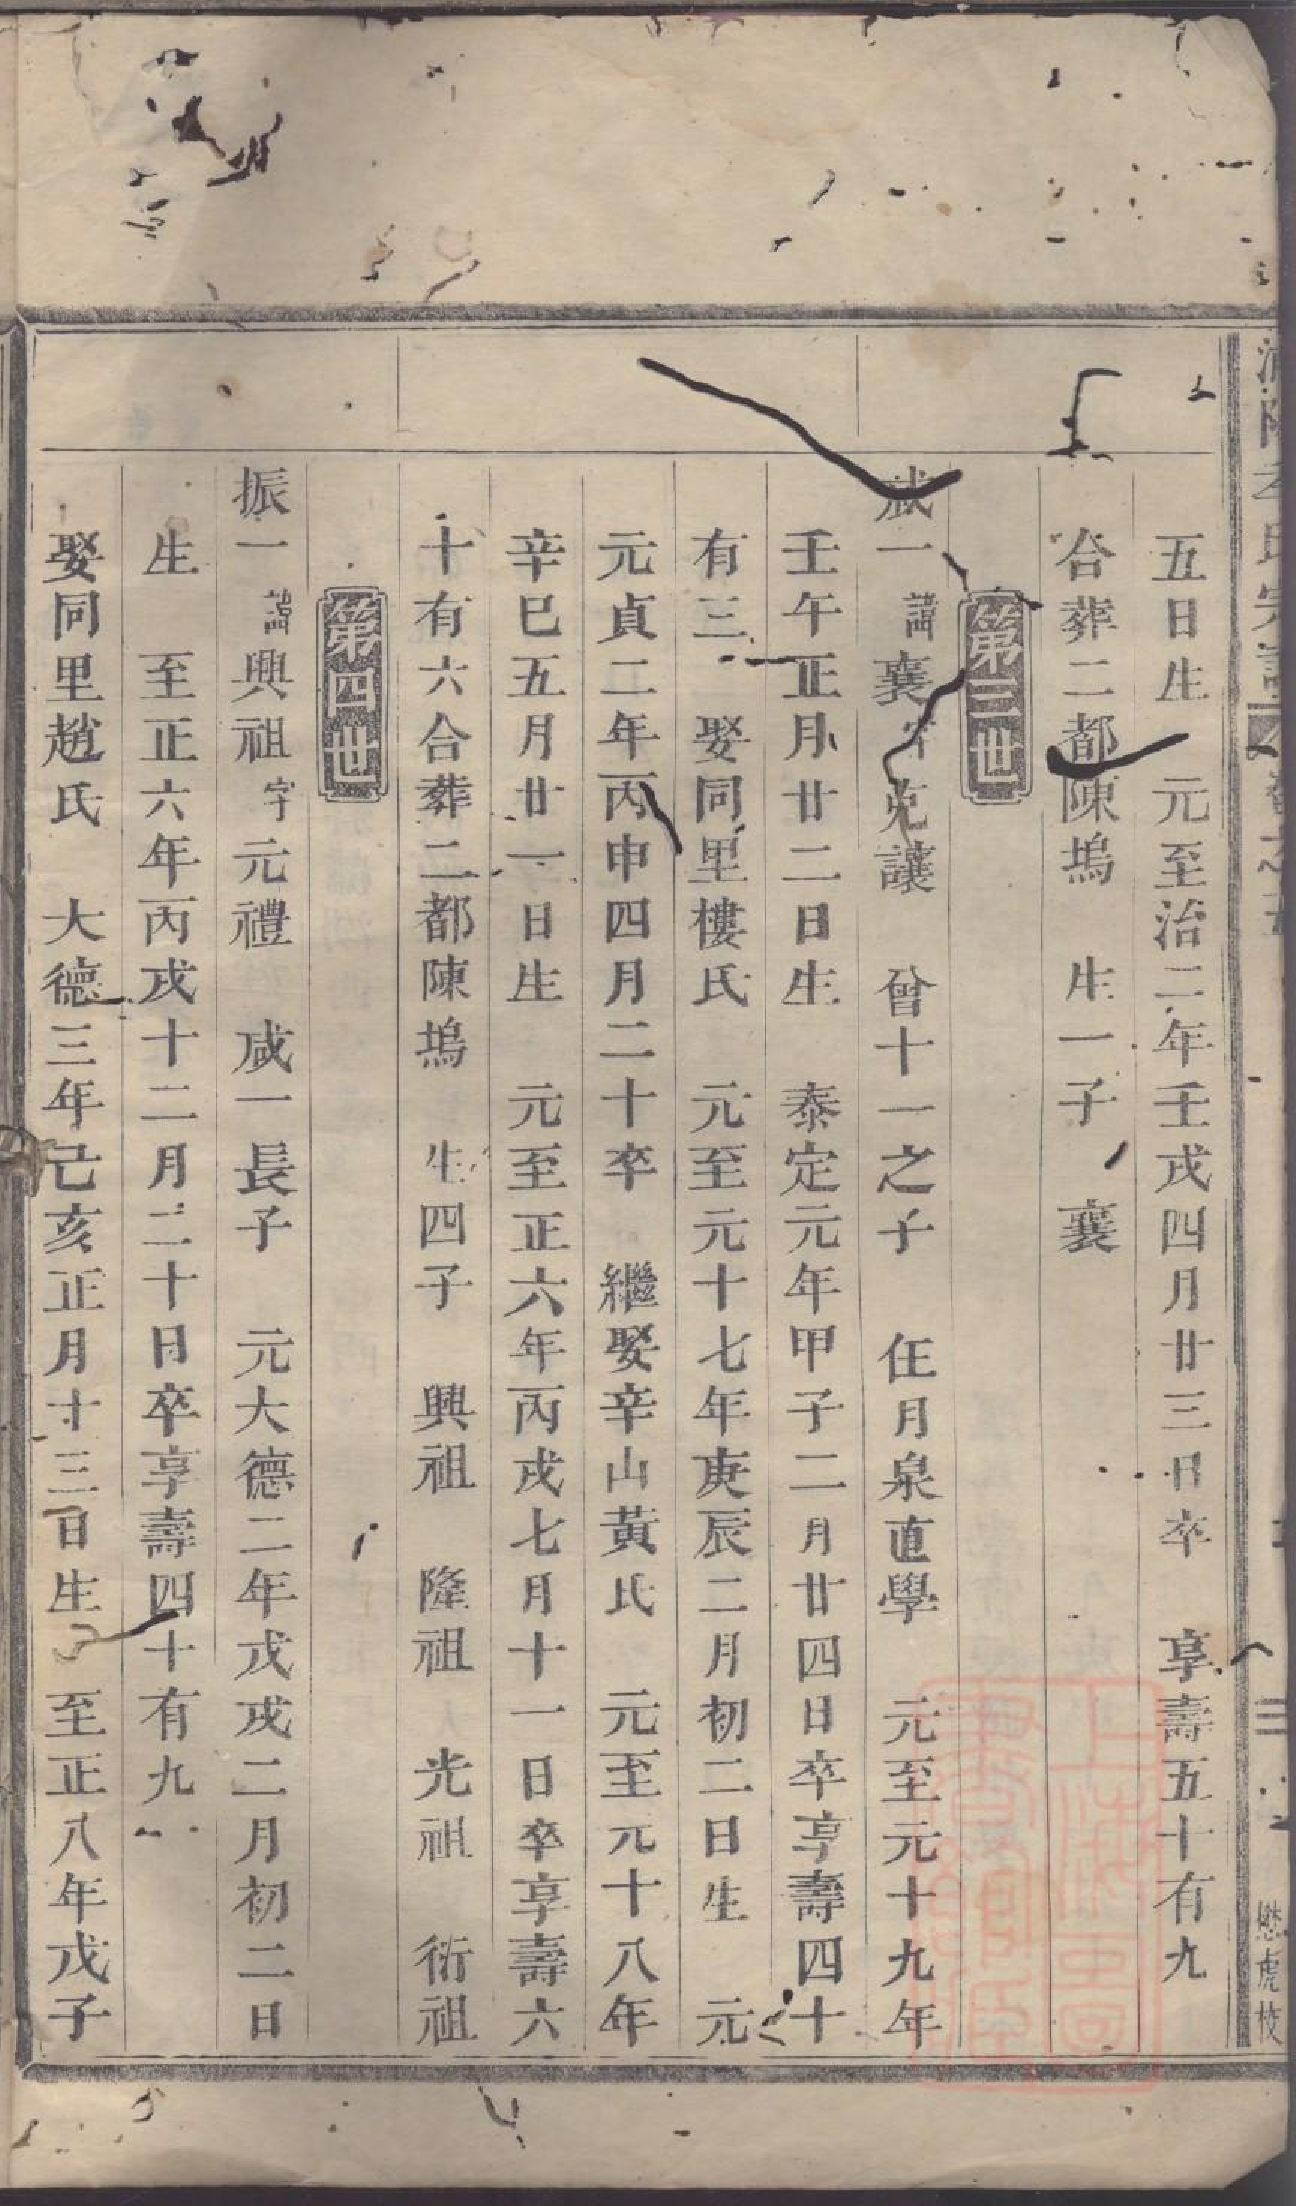 五日生　元至治二年壬戌四月廿三日卒　享壽五十有九
合葬二都陳塢　生一子　襄
第三世
咸一　諱襄字克讓　曾十一之子　任月泉直學　元至元十九年
壬午正月廿二日生　泰定元年甲子二月廿四日卒享壽四十
有三　娶同里樓氏　元至元十七年庚辰二月初二日生　元
元貞二年丙申四月二十卒　繼娶辛山黃氏　元至元十八年
辛巳五月廿一日生　元至正六年丙戌七月十一日卒享壽六
十有六合葬二都陳塢　生四子　興祖　隆祖　光祖　衍祖
第四世
振一　諱興祖字元禮　咸一長子　元大德二年戊戌二月初二日
生　至正六年丙戌十二月二十日卒享壽四十有九
娶同里趙氏　大德三年己亥正月十三日生　至正八年戊子
懋虎校